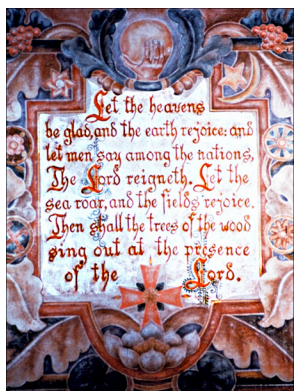 Let the heavens
be glad, and the earth rejoice: and
let men say among the nations,
The Lord reigneth. Let the
sea roar, and the fields rejoice.
Then shall the trees of the wood
sing out at the presence
of the Lord.